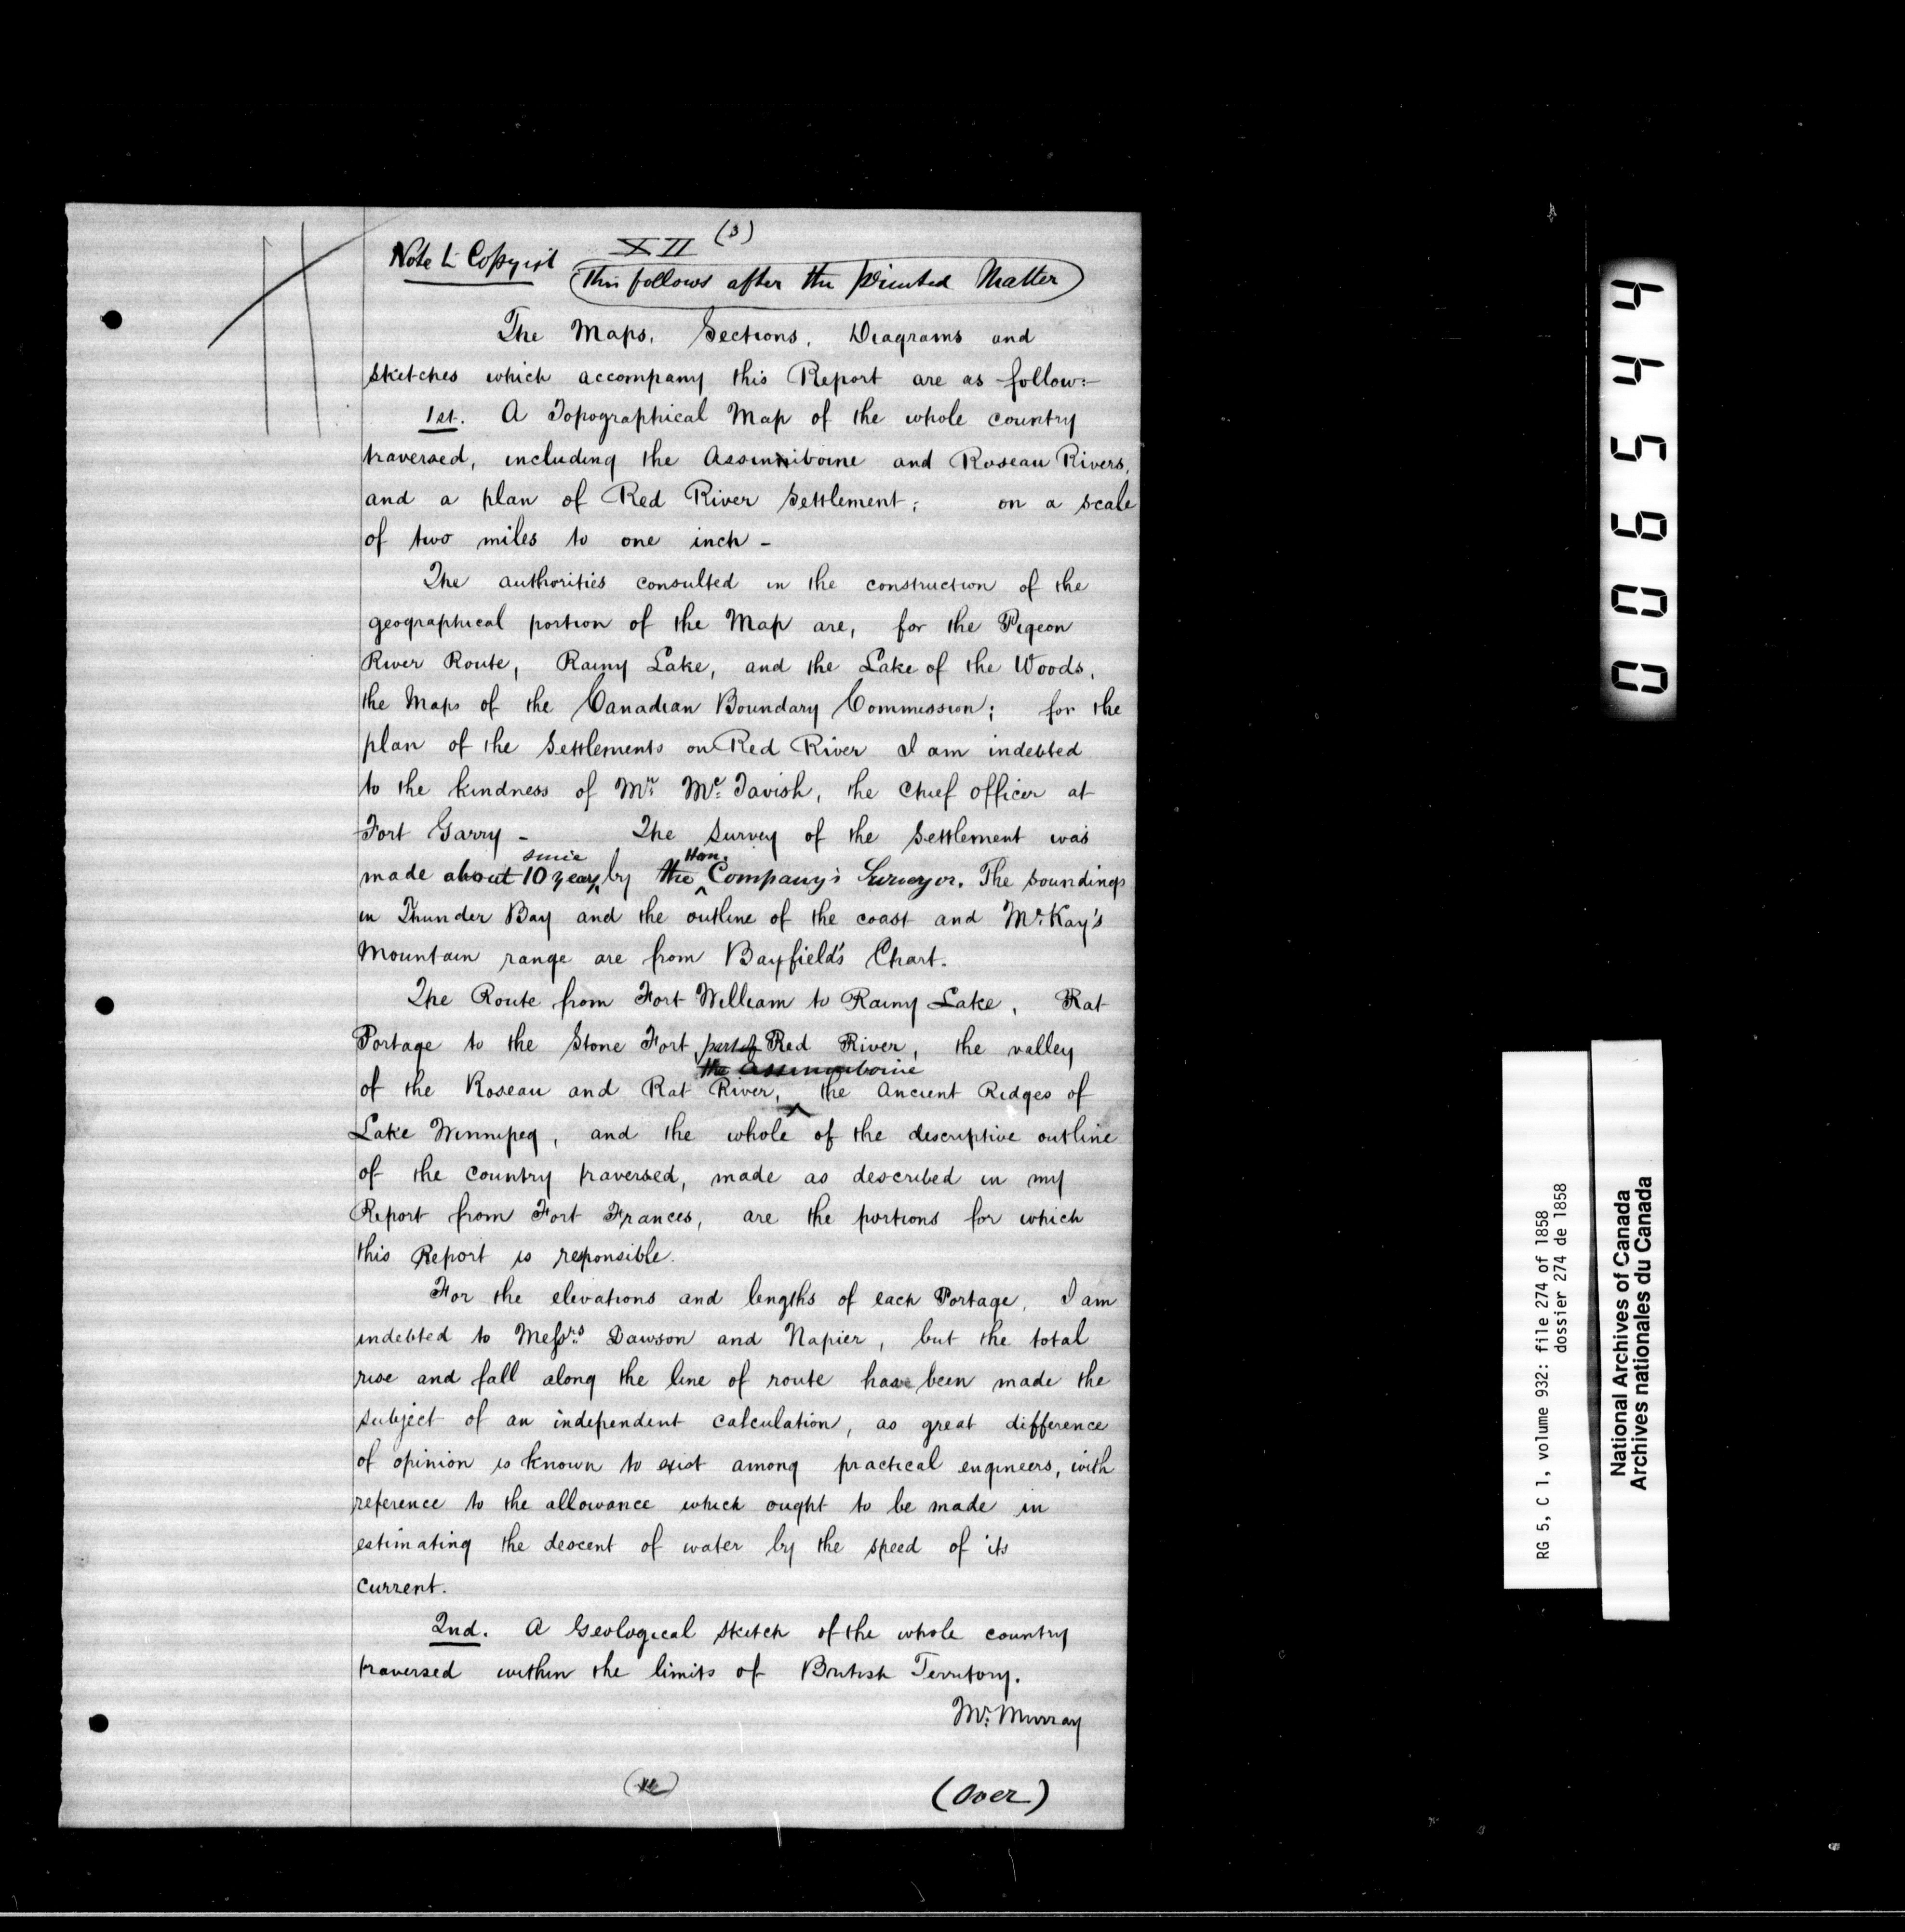 (3)
Note to Copyist XII
This follows after the printed Matter
The Maps, Sections, Diagrams and
sketches which accompany this Report are as follow:-
1st. A Topographical Map of the whole country
traversed, including the Assinniboine and Roseau Rivers,
and a plan of Red River Settlement; on a scale
of two miles to one inch -
The authorities consulted in the construction of the
geographical portion of the Map are, for the Pigeon
River Route, Rainy Lake, and the Lake of the Woods,
the Maps of the Canadian Boundary Commission; for the
plan of the Settlements on Red River I am indebted
to the kindness of Mr. Mc.Tavish, the Chief Officer at
Fort Garry - The Survey of the Settlement was
since Hon.
made about 10 years by the Company's Surveyor. The soundings
in Thunder Bay and the outline of the coast and Mc.Kay's
Mountain range are from Bayfield's Chart.
The Route from Fort William to Rainy Lake, Rat
Portage to the Stone Fort, part of Red River, the valley
the Assinniboine
of the Roseau and Rat River, the Ancient Ridges of
Lake Winnipeg, and the whole of the descriptive outline
of the country traversed, made as described in my
Report from Fort Frances, are the portions for which
this Report is responsible.
For the elevations and lengths of each Portage, I am
indebted to Messrs Dawson and Napier, but the total
rise and fall along the line of route have been made the
subject of an independent calculation, as great difference
of opinion is known to exist among practical engineers, with
reference to the allowance which ought to be made in
estimating the descent of water by the speed of its
current.
2nd. A Geological sketch of the whole country
traversed within the limits of British Territory.
Mr. Murray
(Over)
006544
RG 5, C 1, volume 932: file 274 of 1858
dossier 274 de 1858
National Archives of Canada
Archives nationales du Canada